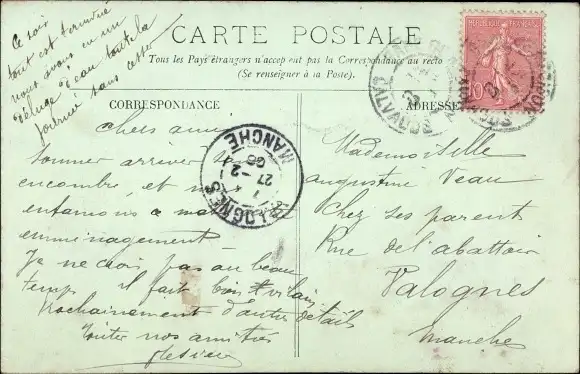 Ce soir
tout est terminé
nous avons eu un
déluge d'eau toute la
journée sans cesse
CARTE POSTALE
Tous les Pays étrangers n'acceptent pas la Correspondance au recto
(Se renseigner à la Poste).
CORRESPONDANCE
ADRESSE
REPUBLIQUE FRANÇAISE
10
CALVADOS
VALOGNES
27 -2
06
MANCHE
Chers amis
sommes arrivés sans
encombre, et
entamons
emménagement
Je ne crois pas au beau
temps il fait bien vilain
Prochainement d'autres détails
Toutes nos amitiés
Mademoiselle
augustine Veau
Chez ses parents
Rue de l'abattoir
Valognes
Manche